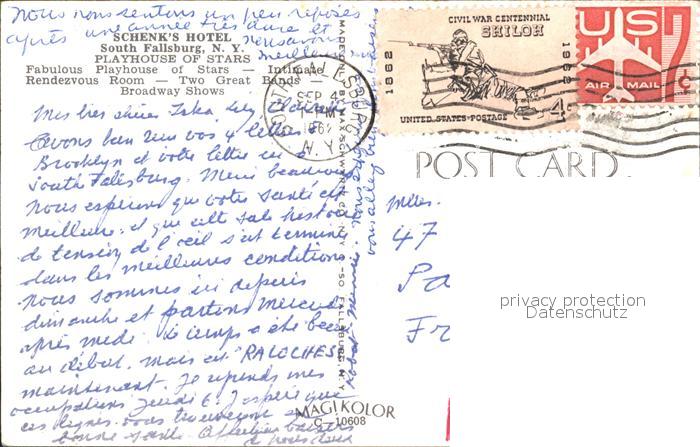 Nous nous sentons un peu reposés
après une année très dure et
SCHENK'S HOTEL
South Fallsburg, N. Y.
PLAYHOUSE OF STARS
Fabulous Playhouse of Stars — Intimate
Rendezvous Room — Two Great Bands —
Broadway Shows
Mes très chères
avons bien reçu vos 4 lettres
Brooklyn et votre lettre
South Falsburg. Merci beaucoup
Nous espérons que votre santé est
meilleure et que cette sale histoire
de tension de l'oeil s'est terminée
dans les meilleures conditions
Nous sommes ici depuis
dimanche et partons mercredi
après midi. Le temps a été beau
au début, mais est "RALOCHES"
maintenant. Je reprends mes
occupations Jeudi 6. J'espère que
ces lignes vous trouveront en
bonne santé. Affectueux baisers
de nous deux
MADE ONLY BY
FALLSBURG, N. Y.
MAGIKOLOR
C 10608
SEP 4
PM
1962
N.Y.
CIVIL WAR CENTENNIAL
SHILOH
1862
1962
UNITED STATES POSTAGE
4¢
US
7¢
AIR MAIL
POST CARD
Mlles.
47
Pa
Fr
privacy protection
Datenschutz